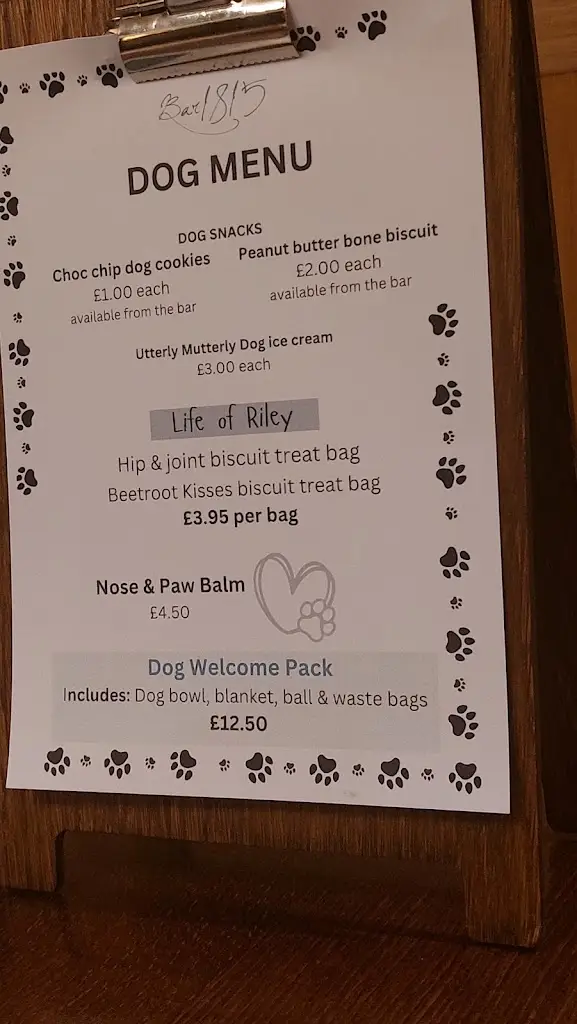 Bar1815
DOG MENU
DOG SNACKS
Choc chip dog cookies
£1.00 each
available from the bar
Peanut butter bone biscuit
£2.00 each
available from the bar
Utterly Mutterly Dog ice cream
£3.00 each
Life of Riley
Hip & joint biscuit treat bag
Beetroot Kisses biscuit treat bag
£3.95 per bag
Nose & Paw Balm
£4.50
Dog Welcome Pack
Includes: Dog bowl, blanket, ball & waste bags
£12.50